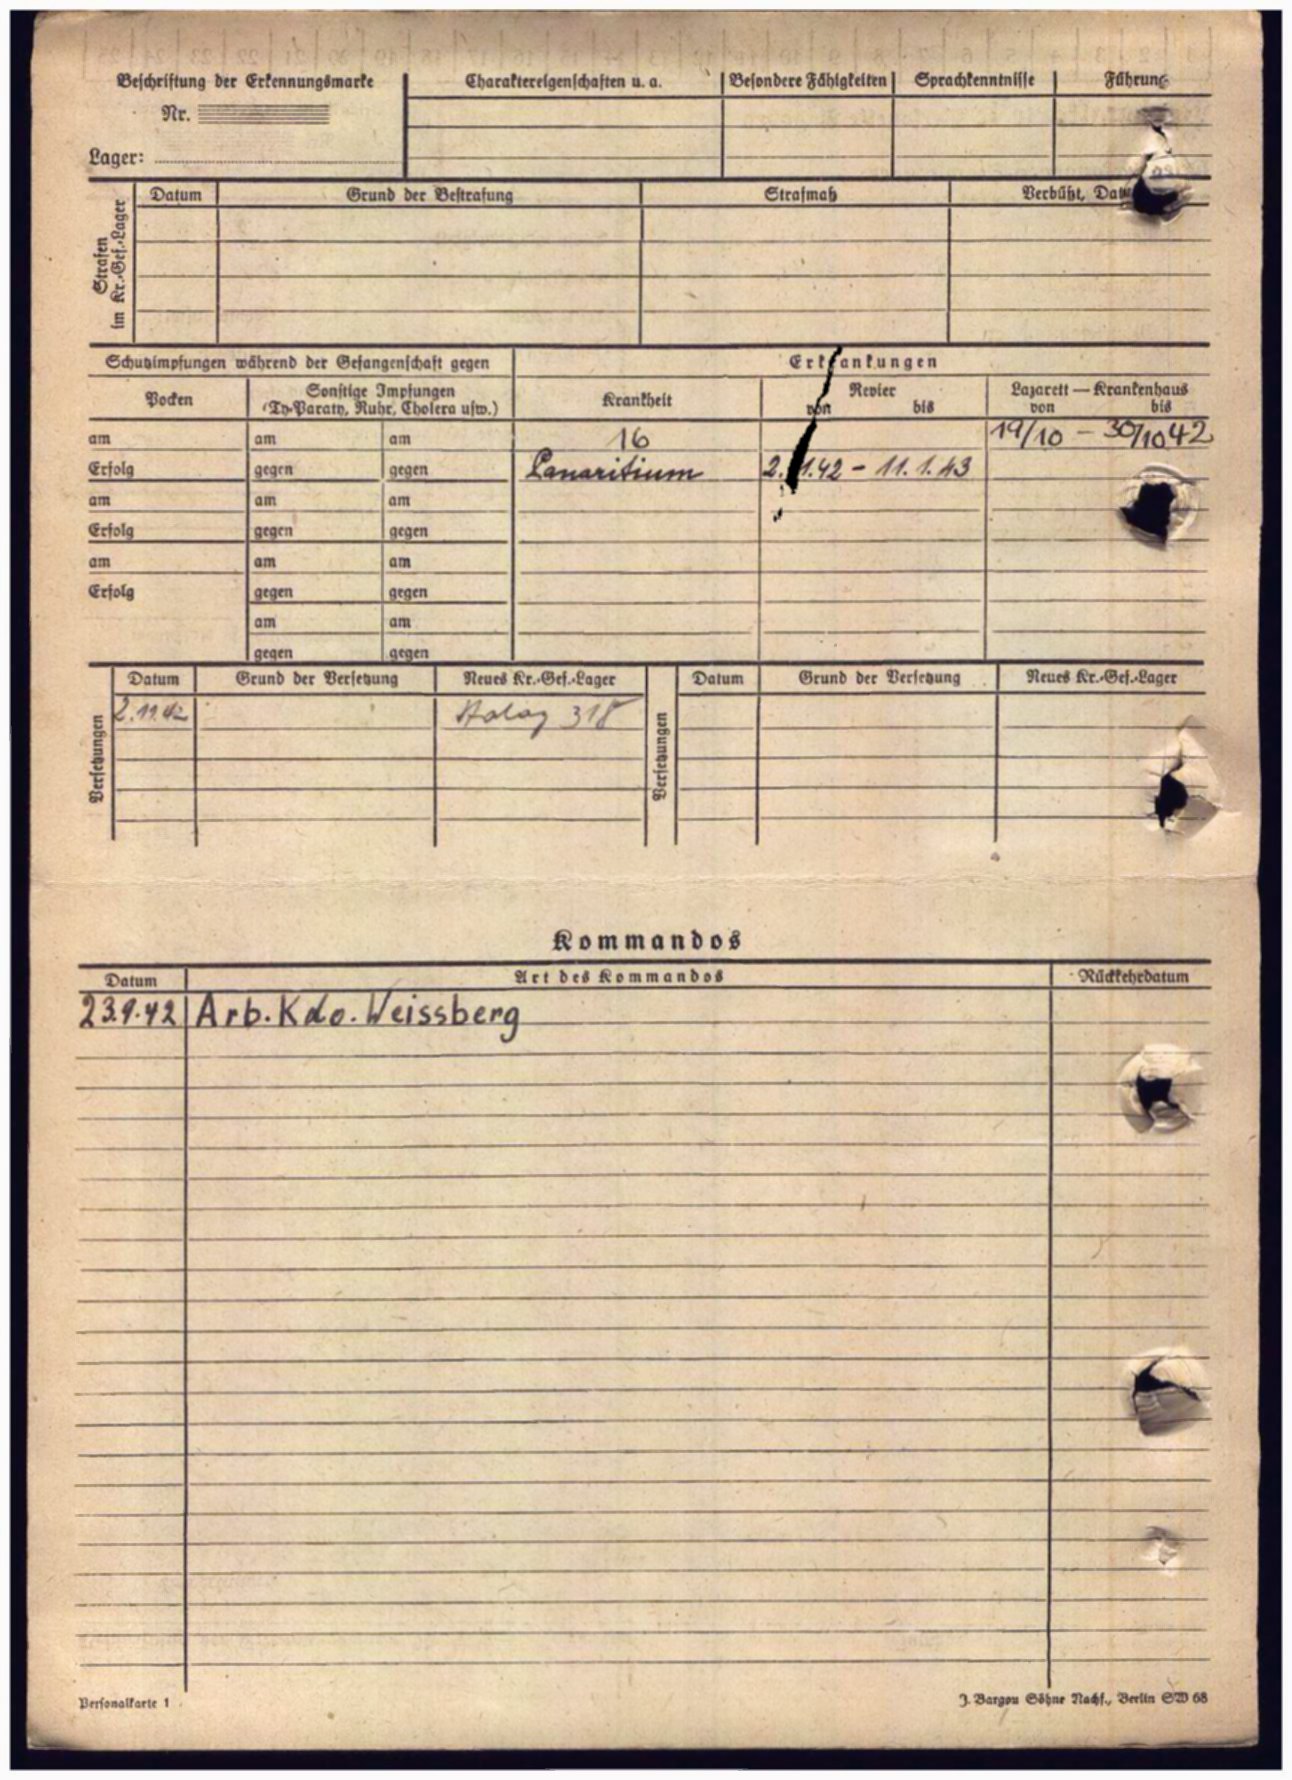 Beschriftung der Erkennungsmarke
Nr.
Lager:
Charaktereigenschaften u. a.
Besondere Fähigkeiten
Sprachkenntnisse
Führung
Strafen im Kr.-Gef.-Lager
Datum
Grund der Bestrafung
Strafmaß
Verbüßt,
Schutzimpfungen während der Gefangenschaft gegen
Erkrankungen
Pocken
Sonstige Impfungen
(Ty-Paraty, Ruhr, Cholera usw.)
Krankheit
Revier
von bis
Lazarett — Krankenhaus
von bis
am am am 16 19/10 - 30/10 42
Erfolg gegen gegen Panaritium 2. 1.42 - 11.1.43
am am am
Erfolg gegen gegen
am am am
Erfolg gegen gegen
am am
gegen gegen
Versetzungen
Datum Grund der Versetzung Neues Kr.-Gef.-Lager
2.11.42 Stalag 318
Versetzungen
Datum Grund der Versetzung Neues Kr.-Gef.-Lager
Kommandos
Datum Art des Kommandos Rückkehrdatum
23.9.42 Arb. Kdo. Weissberg
Personalkarte 1
J. Bargou Söhne Nachf., Berlin SW 68